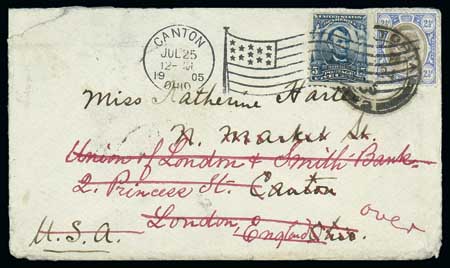 CANTON
JUL 25
12-M
1905
OHIO
UNITED STATES
5
2½ 2½
Miss Katherine Harte
N. Market St.
Union of London & Smith Bank.
2. Princess St. Canton
over
London, England Ohio
U.S.A.